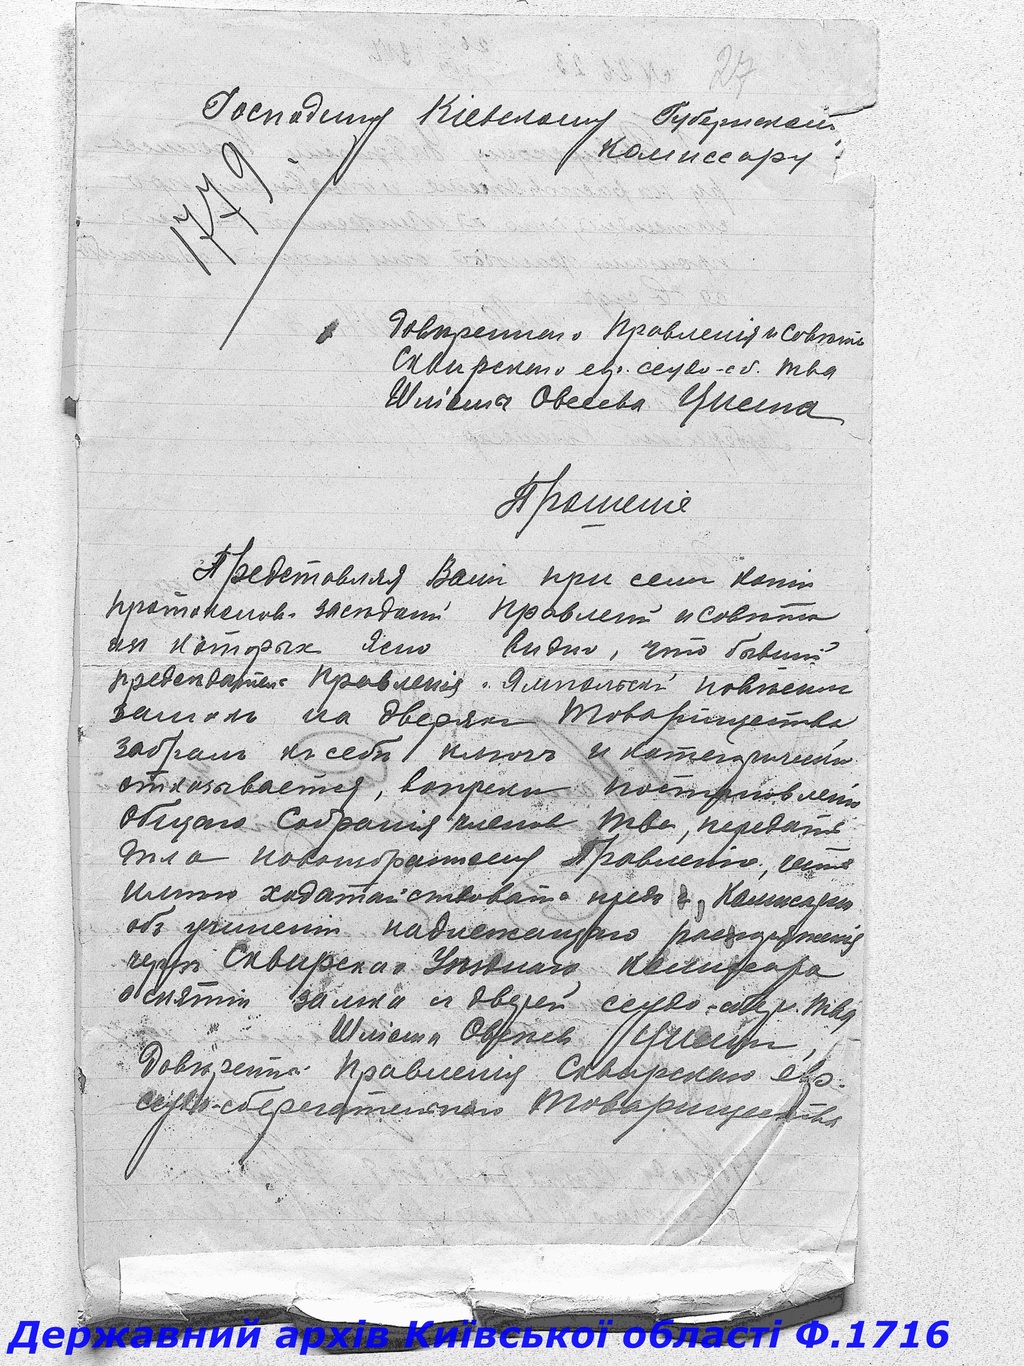 27
Господину Кіевскому Губернском
Комиссару
1779
Довѣреннаго Правленія и Совѣта
Сквирскаго евр. ссудо-сб. тва
Шліома Овсеева
Прошеніе
Представляя Вамъ при семъ копіи
протоколовъ засѣданій Правленія и Совѣта
из которых ясно видно, что бывшій
предсѣдатель Правленія Ямпольскій повѣсилъ
замокъ на дверях Товарищества,
забралъ къ себѣ ключъ и категорически
отказывается, вопреки постановленію
Общаго Собранія членов Тва, передать
дѣла новоизбранному Правленію, честь
имѣю ходатайствовать пред Г. Комиссаром
объ учиненіи надлежащаго распоряженія
черезъ Сквирскаго Уѣзднаго Комиссара
о снятіи замка и дверей ссудо-сбер. тва
Шліома Овсеев
Довѣренный Правленія Сквирскаго евр.
ссудо-сберегательнаго Товарищества
Державний архів Київської області Ф.1716